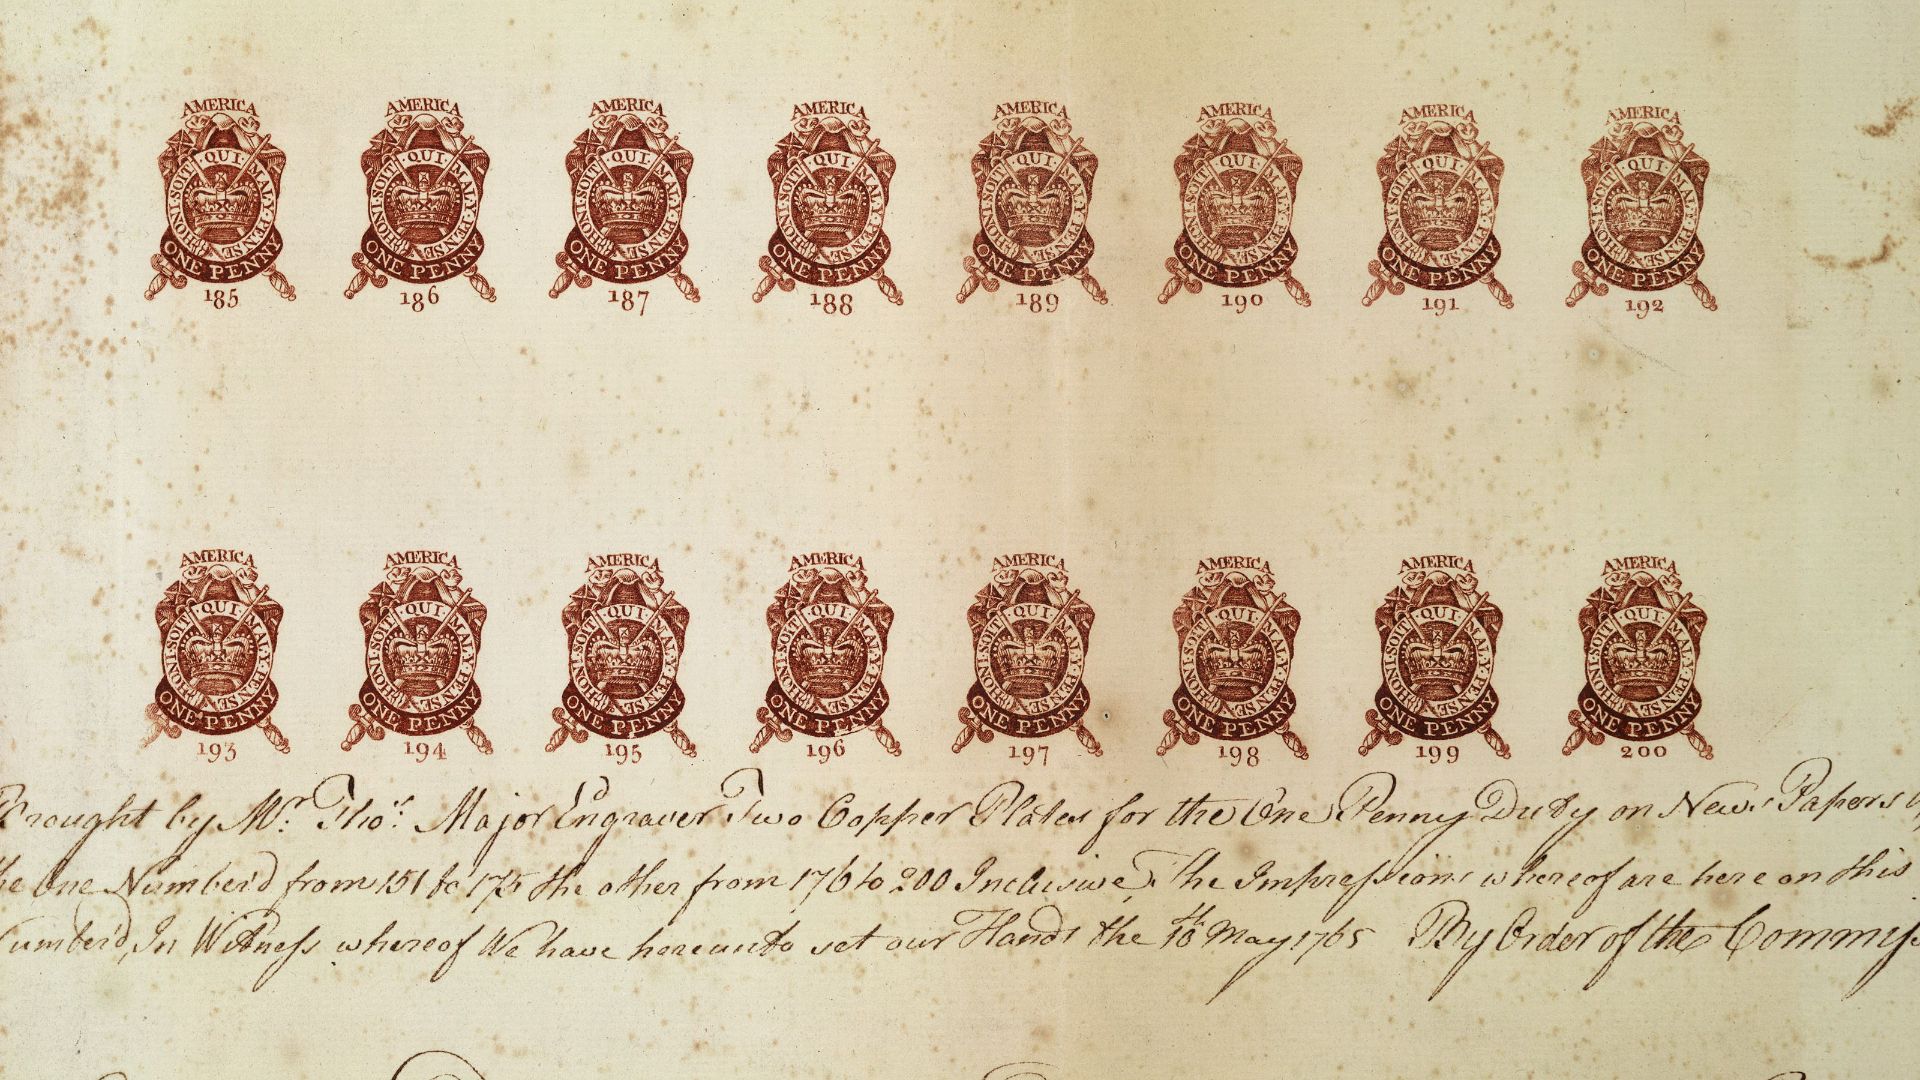 AMERICA AMERICA AMERICA AMERICA AMERICA AMERICA AMERICA AMERICA
HONI·SOIT·QUI·MAL·Y·PENSE HONI·SOIT·QUI·MAL·Y·PENSE HONI·SOIT·QUI·MAL·Y·PENSE HONI·SOIT·QUI·MAL·Y·PENSE HONI·SOIT·QUI·MAL·Y·PENSE HONI·SOIT·QUI·MAL·Y·PENSE HONI·SOIT·QUI·MAL·Y·PENSE HONI·SOIT·QUI·MAL·Y·PENSE
ONE PENNY ONE PENNY ONE PENNY ONE PENNY ONE PENNY ONE PENNY ONE PENNY ONE PENNY
185 186 187 188 189 190 191 192
AMERICA AMERICA AMERICA AMERICA AMERICA AMERICA AMERICA AMERICA
HONI·SOIT·QUI·MAL·Y·PENSE HONI·SOIT·QUI·MAL·Y·PENSE HONI·SOIT·QUI·MAL·Y·PENSE HONI·SOIT·QUI·MAL·Y·PENSE HONI·SOIT·QUI·MAL·Y·PENSE HONI·SOIT·QUI·MAL·Y·PENSE HONI·SOIT·QUI·MAL·Y·PENSE HONI·SOIT·QUI·MAL·Y·PENSE
ONE PENNY ONE PENNY ONE PENNY ONE PENNY ONE PENNY ONE PENNY ONE PENNY ONE PENNY
193 194 195 196 197 198 199 200
Brought by Mr. Thos. Major Engraver Two Copper Plates for the One Penny Duty on News Papers
the One Number'd from 151 to 175 the other from 176 to 200 Inclusive, The Impressions whereof are here on this
Number'd, In Witness whereof We have hereunto set our Hands the 16th May 1765 By Order of the Commiss